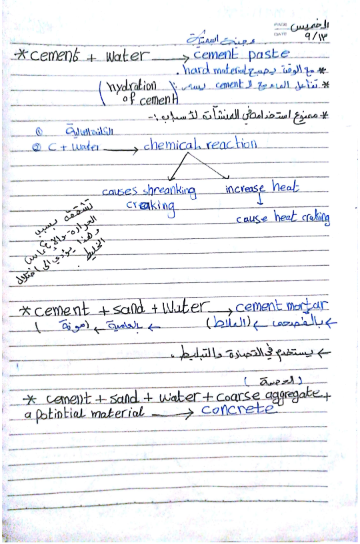 الخميس
٩/١٣
عجينة السمنتية
* cement + water → cement paste
* مع الوقت يصبح hard material.
* تفاعل الماء مع ال cement يسمى (hydration of cement)
* ممنوع استخدامه في المنشآت لأسباب :-
① التكلفة المالية
② C + water → chemical reaction
causes shreanking craking
increase heat
↓
cause heat craking
تشققه بسبب
الحرارة والانكماش
وهذا يؤدي الى
الخليط.
* cement + sand + water → cement mortar
← بالفصحى (الملاط) ← بالعامية (مونة)
← يستخدم في القصارة والتبليط.
(الحصمة)
* cement + sand + water + coarse aggregate +
a potintial material → concrete